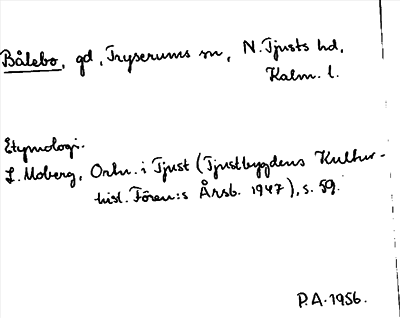 Bålebo, gd, Tryserums sn, N. Tjusts hd,
Kalm. l.
Etymologi.
L. Moberg, Ortn. i Tjust (Tjustbygdens Kultur-
hist. Fören:s Årsb. 1947), s. 59.
P.A. 1956.